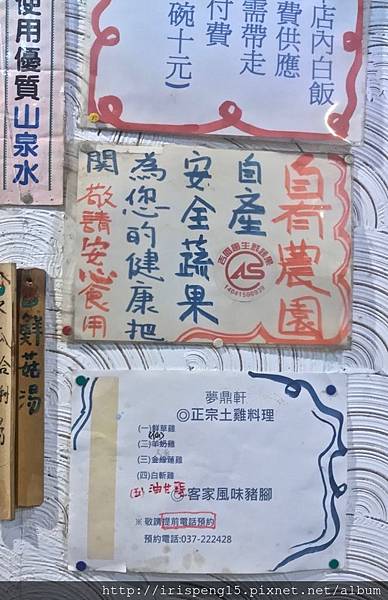 使用優質山泉水
店內白飯
費供應
需帶走
付費
碗十元)
自有農園
自產
安全蔬果
為您的健康把
関 敬請安心食用
14041500939
鮮菇湯
夢鼎軒
◎正宗土雞料理
(一)鮮草雞
(二)羊奶雞
(三)金線蓮雞
(四)白斬雞
(五)油甘雞
客家風味豬腳
※敬請提前電話預約
預約電話:037-222428
http://irispeng15.pixnet.net/album